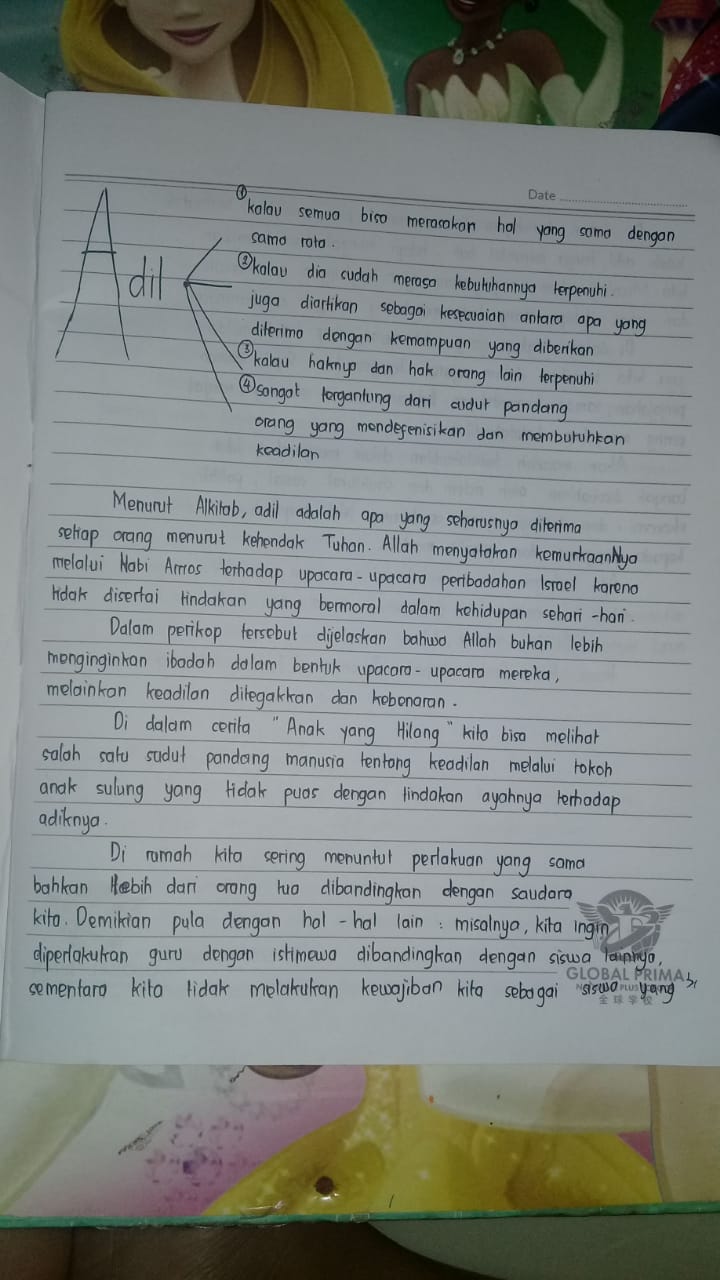 Date
Adil
① kalau semua bisa merasakan hal yang sama dengan
sama rata.
② kalau dia sudah merasa kebutuhannya terpenuhi.
juga diartikan sebagai kesecuaian antara apa yang
diterima dengan kemampuan yang diberikan
③ kalau haknya dan hak orang lain terpenuhi
④ sangat tergantung dari sudut pandang
orang yang mendefenisikan dan membutuhkan
keadilan
Menurut Alkitab, adil adalah apa yang seharusnya diterima
setiap orang menurut kehendak Tuhan. Allah menyatakan kemurkaanNya
melalui Nabi Amos terhadap upacara-upacara peribadahan Israel karena
tidak disertai tindakan yang bermoral dalam kehidupan sehari-hari.
Dalam perikop tersebut dijelaskan bahwa Allah bukan lebih
menginginkan ibadah dalam bentuk upacara-upacara mereka,
melainkan keadilan ditegakkan dan kebenaran.
Di dalam cerita "Anak yang Hilang" kita bisa melihat
salah satu sudut pandang manusia tentang keadilan melalui tokoh
anak sulung yang tidak puas dengan tindakan ayahnya terhadap
adiknya.
Di rumah kita sering menuntut perlakuan yang sama
bahkan lebih dari orang tua dibandingkan dengan saudara
kita. Demikian pula dengan hal-hal lain : misalnya, kita ingin
diperlakukan guru dengan istimewa dibandingkan dengan siswa lainnya,
sementara kita tidak melakukan kewajiban kita sebagai siswa yang
GLOBAL PRIMA
PLUS
全球学校